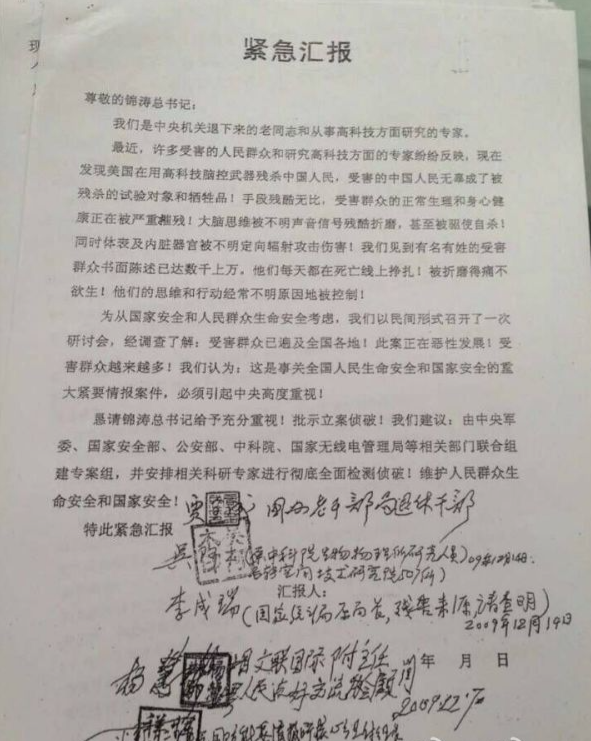 现
人
紧急汇报
尊敬的锦涛总书记：
我们是中央机关退下来的老同志和从事高科技方面研究的专家。
最近，许多受害的人民群众和研究高科技方面的专家纷纷反映，现在
发现美国在用高科技脑控武器残杀中国人民，受害的中国人民无辜成了被
残杀的试验对象和牺牲品！手段残酷无比，受害群众的正常生理和身心健
康正在被严重摧残！大脑思维被不明声音信号残酷折磨，甚至被驱使自杀！
同时体表及内脏器官被不明定向辐射攻击伤害！我们见到有名有姓的受害
群众书面陈述已达数千上万，他们每天都在死亡线上挣扎！被折磨得痛不
欲生！他们的思维和行动经常不明原因地被控制！
为从国家安全和人民群众生命安全考虑，我们以民间形式召开了一次
研讨会，经调查了解：受害群众已遍及全国各地！此案正在恶性发展！受
害群众越来越多！我们认为：这是事关全国人民生命安全和国家安全的重
大紧要情报案件，必须引起中央高度重视！
恳请锦涛总书记给予充分重视！批示立案侦破！我们建议：由中央军
委、国家安全部、公安部、中科院、国家无线电管理局等相关部门联合组
建专案组，并安排相关科研专家进行彻底全面检测侦破！维护人民群众生
命安全和国家安全！
贾 老干部局退休干部
特此紧急汇报
吴 (原中科院生物物理所研究人员) 09年12月14日
空间技术研究院 所)
汇报人：
李成瑞(国家统计局原局长, 请查明)
2009年12月19日
杨 文联国际 主任 年 月 日
人民友好交流 顾问
2009.12.20